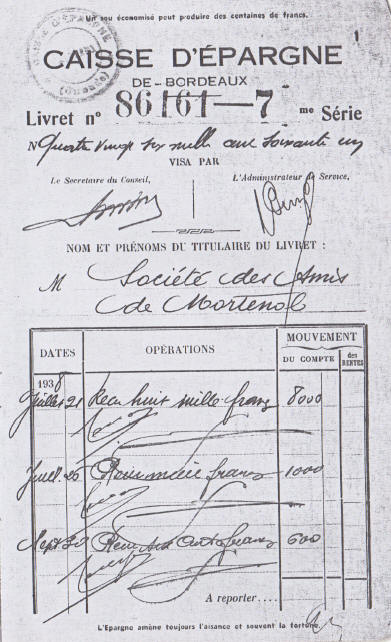 Un sou économisé peut produire des centaines de francs.
1
CAISSE D'ÉPARGNE
DE-BORDEAUX
Livret nº 86161—7 me Série
N Quatre vingt six mille cent soixante un
VISA PAR
Le Secrétaire du Conseil, L'Administrateur de Service,
NOM ET PRÉNOMS DU TITULAIRE DU LIVRET :
M Société des Amis
de Mortenol
DATES OPÉRATIONS MOUVEMENT
DU COMPTE des RENTES
1938
Juillet 21 Reçu huit mille francs 8000
Juill 26 Reçu mille francs 1000
Sept 30 Reçu six cents francs 600
A reporter....
L'Epargne amène toujours l'aisance et souvent la fortune.